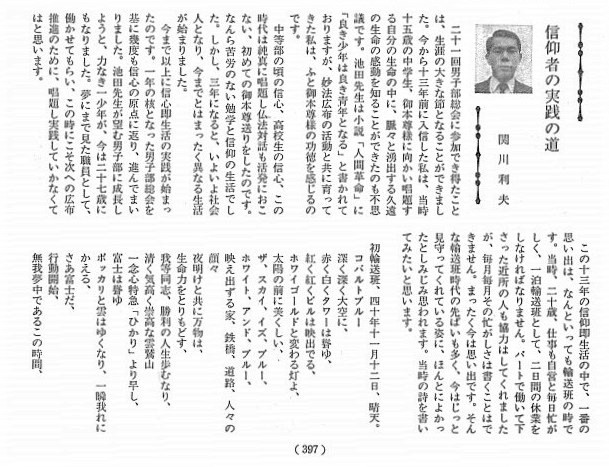 信仰者の実践の道
関川利夫
二十一回男子部総会に参加でき得たこと
は、生涯の大きな節となることができまし
た。今から十三年前に入信した私は、当時
十五歳の中学生、御本尊様に向かい唱題す
る自分の生命の中に、脹々と湧出する久遠
の生命の感動を知ることができたのも不思
議です。池田先生は小説「人間革命」に
「良き少年は良き青年となる」と書かれて
おりますが、妙法広布の活動と共に育って
きた私は、ふと御本尊様の功徳を感じるの
です。
中等部の頃の信心、高校生の信心、この
時代は純真に唱題し仏法対話も活発におこ
ない、初めての御本尊送りをしたのです。
なんら苦労のない勉学と信仰の生活でし
た。しかし、三年になると、いよいよ社会
人となり、今までとはまったく異なる生活
が始まりました。
今まで以上に信心即生活の実践が始まっ
たのです。一年の核となった男子部総会を
基に幾度も信心の原点に返り、進んでまい
りました。池田先生が望む男子部に成長し
ようと、力なき一少年が、今は二十七歳に
もなりました。夢にまで見た職員として、
働かせてもらい、この時にこそ次への広布
推進のために、唱題し実践していかなくて
はと思います。
この十三年の信仰即生活の中で、一番の
思い出は、なんといっても輸送班の時で
す。当時、二十歳、仕事も自営と毎日忙が
しく、一泊輸送班として、二日間の休業を
しなければなりません。パートで働いて下
さった近所の人も協力はしてくれました
が、毎月毎月その忙がしさは書くことはで
きません。まったく今は思い出です。そん
な輸送班時代の先ぱいも多く、今はじっと
見守ってくれている姿に、ほんとによかっ
たとしみじみ思われます。当時の詩を書い
てみたいと思います。
初輸送班、四十年十一月十二日、晴天。
コバルトブルー
深く深く大空に、
赤く白くタワーは聳ゆ、
紅く紅くビルは映出でる、
ホワイゴールドと変わる灯よ、
太陽の前に美しくい、
ザ、スカイ、イズ、ブルー、
ホワイト、アンド、ブルー、
映え出する家、鉄橋、道路、人々の
顔々
夜明けと共に万物は、
生命力をとりもどす、
我等同志、勝利の人生歩むなり、
清く気高く崇高な霊鷲山
一念心特急「ひかり」より早し、
富士は聳ゆ
ポッカリと雲はゆくなり、一瞬我れに
かえる、
さあ富士だ、
行動開始、
無我夢中であるこの時間、
(397)